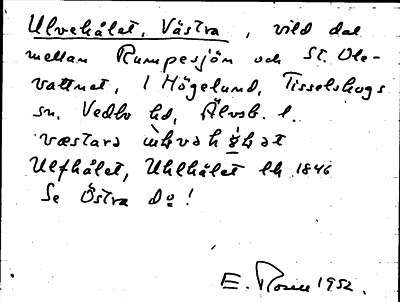 Ulvehålet, Västra, vild dal
mellan Rumpesjön och St. Ole-
vattnet, I Högelund, Tisselskogs
sn, Vedbo hd, Älvsb. l.
Ulfhålet, Uhlhålet lh 1846
Se Östra do!
E. Rosen 1952.